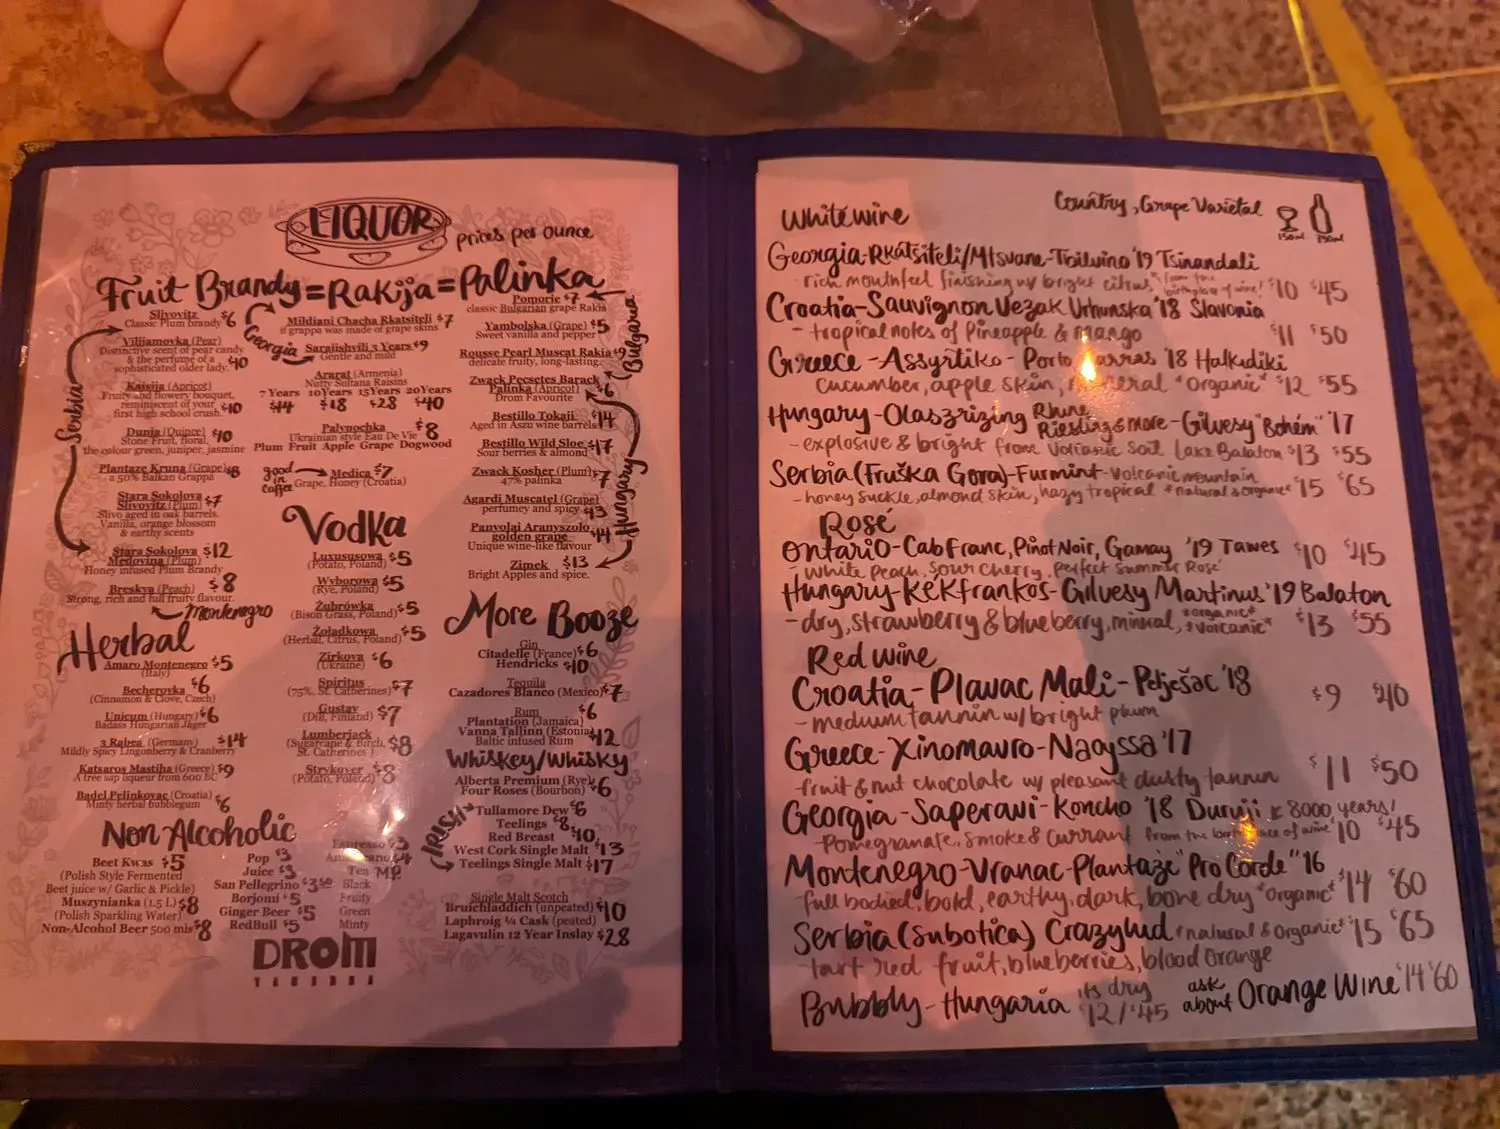 LIQUOR prices per ounce
Fruit Brandy = Rakija = Palinka
Serbia
Slivovitz $6
Classic Plum brandy
Vilijamovka (Pear)
Distinctive scent of pear candy
& the perfume of a
sophisticated older lady. $10
Kaisija (Apricot)
Fruity and flowery bouquet,
reminiscent of your
first high school crush. $10
Dunja (Quince) $10
Stone Fruit, floral,
the colour green, juniper, jasmine
Plantaze Kruna (Grape) $8
a 50% Balkan Grappa
Stara Sokolova
Slivovitz (Plum) $7
Slivo aged in oak barrels.
Vanilla, orange blossom
& earthy scents
Stara Sokolova $12
Medovina (Plum)
Honey infused Plum Brandy
Breskva (Peach) $8
Strong, rich and full fruity flavour.
Montenegro
Georgia
Mildiani Chacha Rkatsiteli $7
if grappa was made of grape skins
Sarajishvili 3 Years $9
Gentle and mild
Ararat (Armenia)
Nutty Sultana Raisins
7 Years 10 Years 15 Years 20 Years
$14 $18 $28 $40
Palynochka $8
Ukrainian style Eau De Vie
Plum Fruit Apple Grape Dogwood
good in coffee
Medica $7
Grape, Honey (Croatia)
Bulgaria
Pomorie $7
classic Bulgarian grape Rakia
Yambolska (Grape) $5
Sweet vanilla and pepper
Rousse Pearl Muscat Rakia $9
delicate fruity, long-lasting.
Hungary
Zwack Pecsetes Barack
Palinka (Apricot) $6
Drom Favourite
Bestillo Tokaji $14
Aged in Aszu wine barrels
Bestillo Wild Sloe $17
Sour berries & almond
Zwack Kosher (Plum) $7
47% palinka
Agardi Muscatel (Grape)
perfumey and spicy $13
Panyolai Aranyszolo
golden grape $14
Unique wine-like flavour
Zimek $13
Bright Apples and spice.
Herbal
Amaro Montenegro $5
(Italy)
Becherovka $6
(Cinnamon & Clove, Czech)
Unicum (Hungary) $6
Badass Hungarian Jager
3 Rabea (Germany) $14
Mildly Spicy Lingonberry & Cranberry
Katsaros Mastiha (Greece) $9
A tree sap liqueur from 600 BC
Badel Pelinkovac (Croatia)
Minty herbal bubblegum $6
Vodka
Luxususowa $5
(Potato, Poland)
Wyborowa $5
(Rye, Poland)
Żubrówka $5
(Bison Grass, Poland)
Żoladkowa $5
(Herbal, Citrus, Poland)
Zirkova $6
(Ukraine)
Spiritus $7
(75%, St. Catherines)
Gustav $7
(Dill, Finland)
Lumberjack $8
(Sugarcape & Birch,
St. Catherines )
Strykover $8
(Potato, Poland)
More Booze
Gin
Citadelle (France) $6
Hendricks $10
Tequila
Cazadores Blanco (Mexico) $7
Rum
Plantation (Jamaica) $6
Vanna Tallinn (Estonia) $12
Baltic infused Rum
Whiskey/Whisky
Alberta Premium (Rye)
Four Roses (Bourbon) $6
IRISH
Tullamore Dew $6
Teelings $8
Red Breast $10
West Cork Single Malt $13
Teelings Single Malt $17
Single Malt Scotch
Bruichladdich (unpeated) $10
Laphroig ¼ Cask (peated)
Lagavulin 12 Year Inslay $28
Non Alcoholic
Beet Kwas $5
(Polish Style Fermented
Beet juice w/ Garlic & Pickle)
Muszynianka (1.5 L) $8
(Polish Sparkling Water)
Non-Alcohol Beer 500 mls $8
Pop $3
Juice $3
San Pellegrino $3.50
Borjomi $5
Ginger Beer $5
RedBull $5
Espresso $3
Americano $4
Tea M.P.
Black
Fruity
Green
Minty
DROM
TABERNA
White wine
Country, Grape Varietal
150ml 750ml
Georgia-Rkatsiteli/Mtsvane-Tbilvino '19 Tsinandali
- rich mouthfeel finishing w/ bright citrus "from the birthplace of wine! $10 $45
Croatia-Sauvignon Vezak Vrhunska '18 Slavonia
- tropical notes of Pineapple & mango $11 $50
Greece - Assyrtiko - Porto Carras '18 Halkidiki
cucumber, apple skin, mineral *Organic* $12 $55
Hungary-Olaszrizing Rhine Riesling & more - Gilvesy "Bohém" '17
- explosive & bright from Volcanic Soil Lake Balaton $13 $55
Serbia (Fruška Gora) - Furmint - volcanic mountain
- honey suckle, almond skin, hazy tropical *natural & organic* $15 $65
Rosé
Ontario-Cab Franc, Pinot Noir, Gamay '19 Tawes $10 $45
- White Peach, Sour Cherry, perfect summer Rosé
Hungary-Kékfrankos-Gilvesy Martinus '19 Balaton
- dry, strawberry & blueberry, mineral, *organic* *volcanic* $13 $55
Red wine
Croatia-Plavac Mali-Pelješac '18 $9 $40
- medium tannin w/ bright plum
Greece-Xinomavro-Naoyssa '17
- fruit & nut chocolate w/ pleasant dusty tannin $11 $50
Georgia-Saperavi-Koncho '18 Duruji 8000 years!
- Pomegranate, Smoke & Currant from the birthplace of wine" $10 $45
Montenegro-Vranac-Plantaže "Pro Corde" '16
- full bodied, bold, earthy, dark, bone dry *Organic* $14 $60
Serbia (Subotica) Crazy Lud *natural & Organic* $15 $65
- tart red fruit, blueberries, blood orange
Bubbly - Hungaria its dry $12/$45 ask about Orange Wine $14 $60